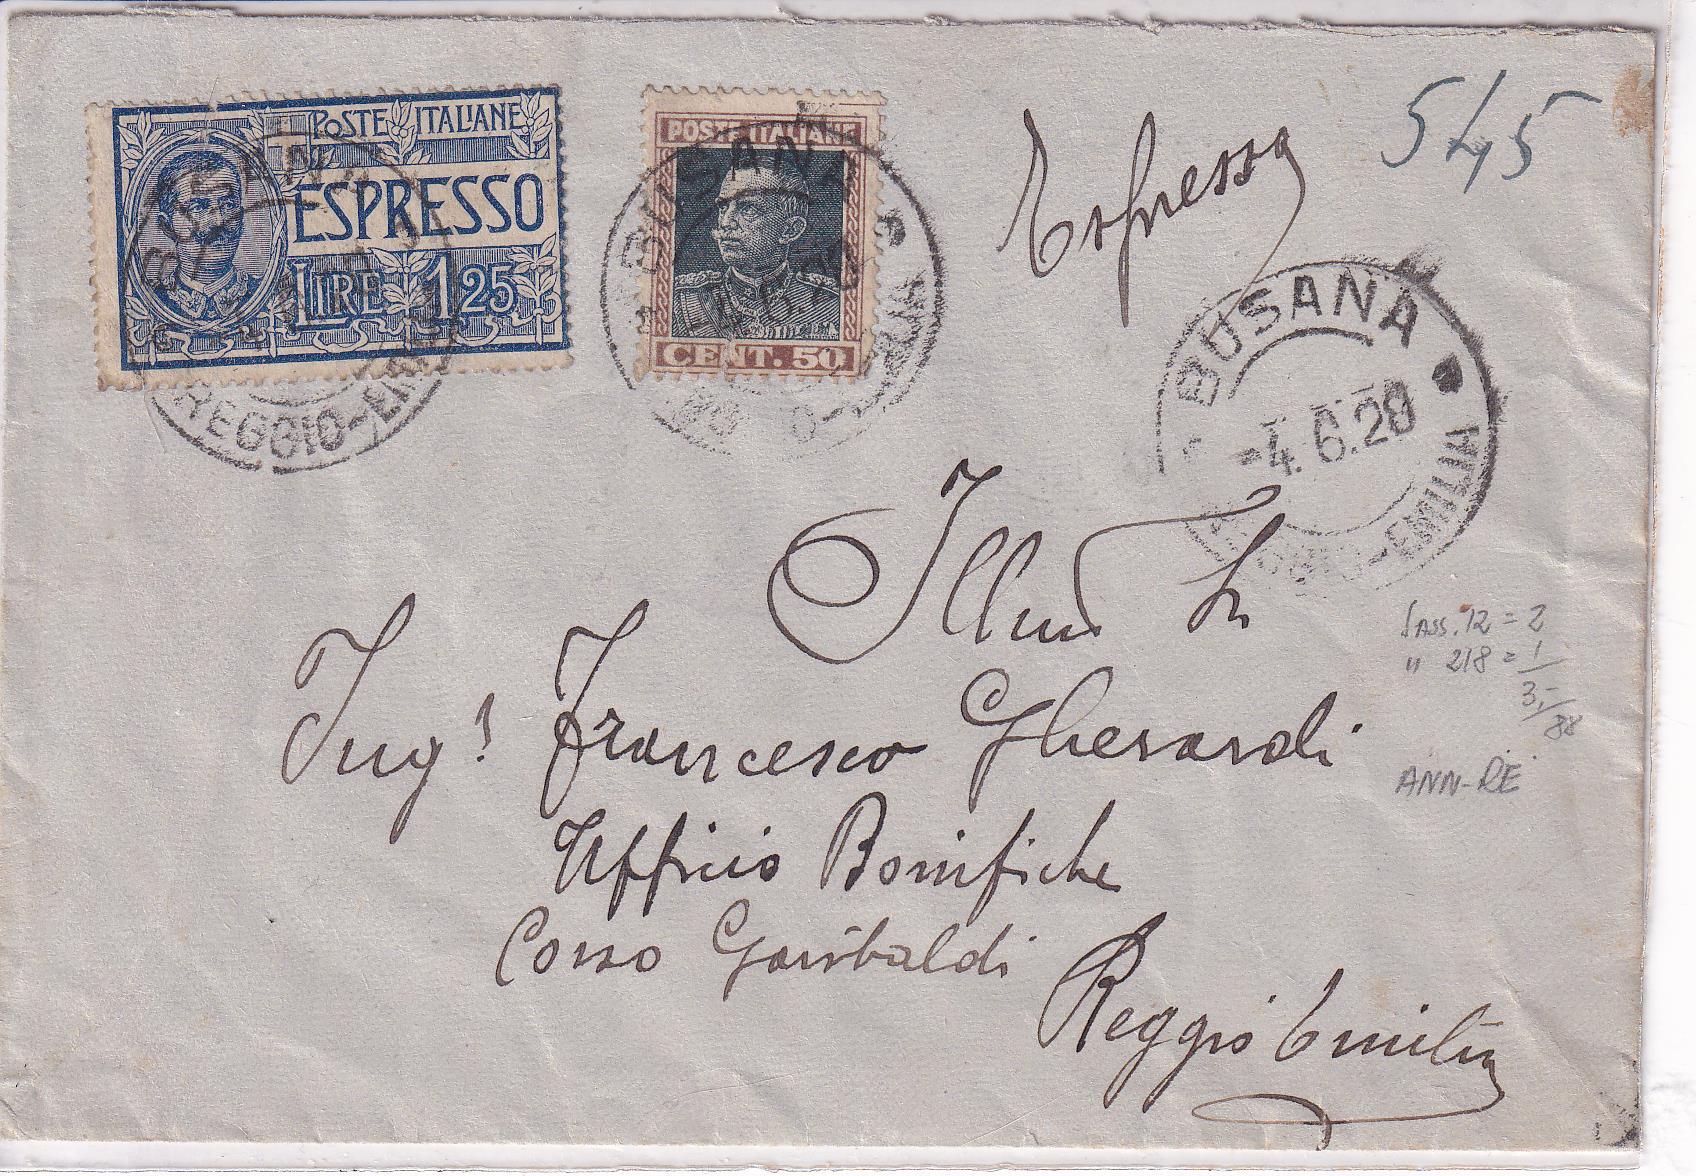 POSTE ITALIANE
ESPRESSO
LIRE 1,25
BUSANA
REGGIO-EMILIA
POSTE ITALIANE
CENT. 50
BUSANA
Espresso
545
BUSANA
-4.6.28
REGGIO-EMILIA
Illmo
Ing. Francesco Gherardi
Ufficio Bonifiche
Corso Garibaldi
Reggio Emilia
SASS. 12 = 2
" 218 = 1
3,-
88
ANN-RE